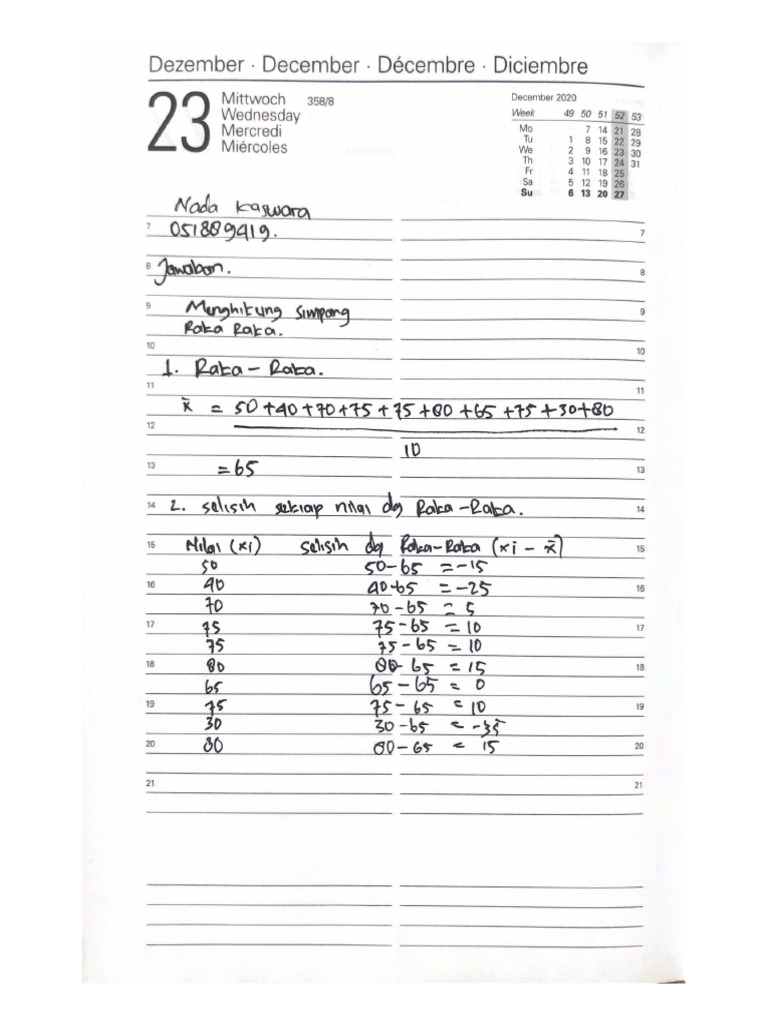 Dezember · December · Décembre · Diciembre
23
Mittwoch 358/8
Wednesday
Mercredi
Miércoles
December 2020
Week 49 50 51 52 53
Mo 7 14 21 28
Tu 1 8 15 22 29
We 2 9 16 23 30
Th 3 10 17 24 31
Fr 4 11 18 25
Sa 5 12 19 26
Su 6 13 20 27
Nada Kaswara
7 051889419. 7
8 Jawaban. 8
9 Menghitung simpang 9
Rata Rata.
10 10
1. Rata - Rata.
11 11
x̄ = 50+40+70+75+75+80+65+75+30+80
12 12
10
13 =65 13
14 2. selisih setiap nilai dg Rata-Rata. 14
15 Nilai (xi) selisih dg Rata-Rata (xi - x̄) 15
50 50-65 = -15
16 40 40-65 = -25 16
70 70-65 = 5
17 75 75-65 = 10 17
75 75-65 = 10
18 80 80-65 = 15 18
65 65-65 = 0
19 75 75-65 = 10 19
30 30-65 = -35
20 80 80-65 = 15 20
21 21